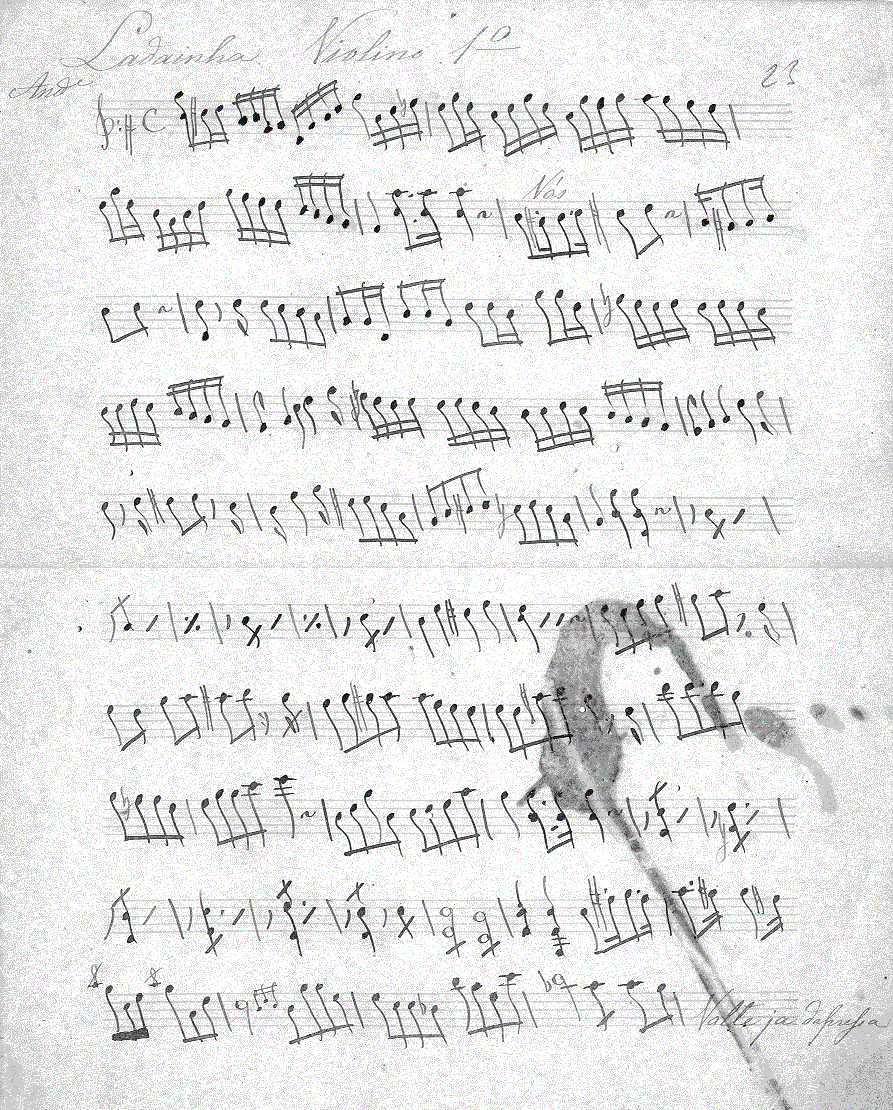 Ladainha Violino 1º
23
Andᵉ
Nós
Volte ja depressa